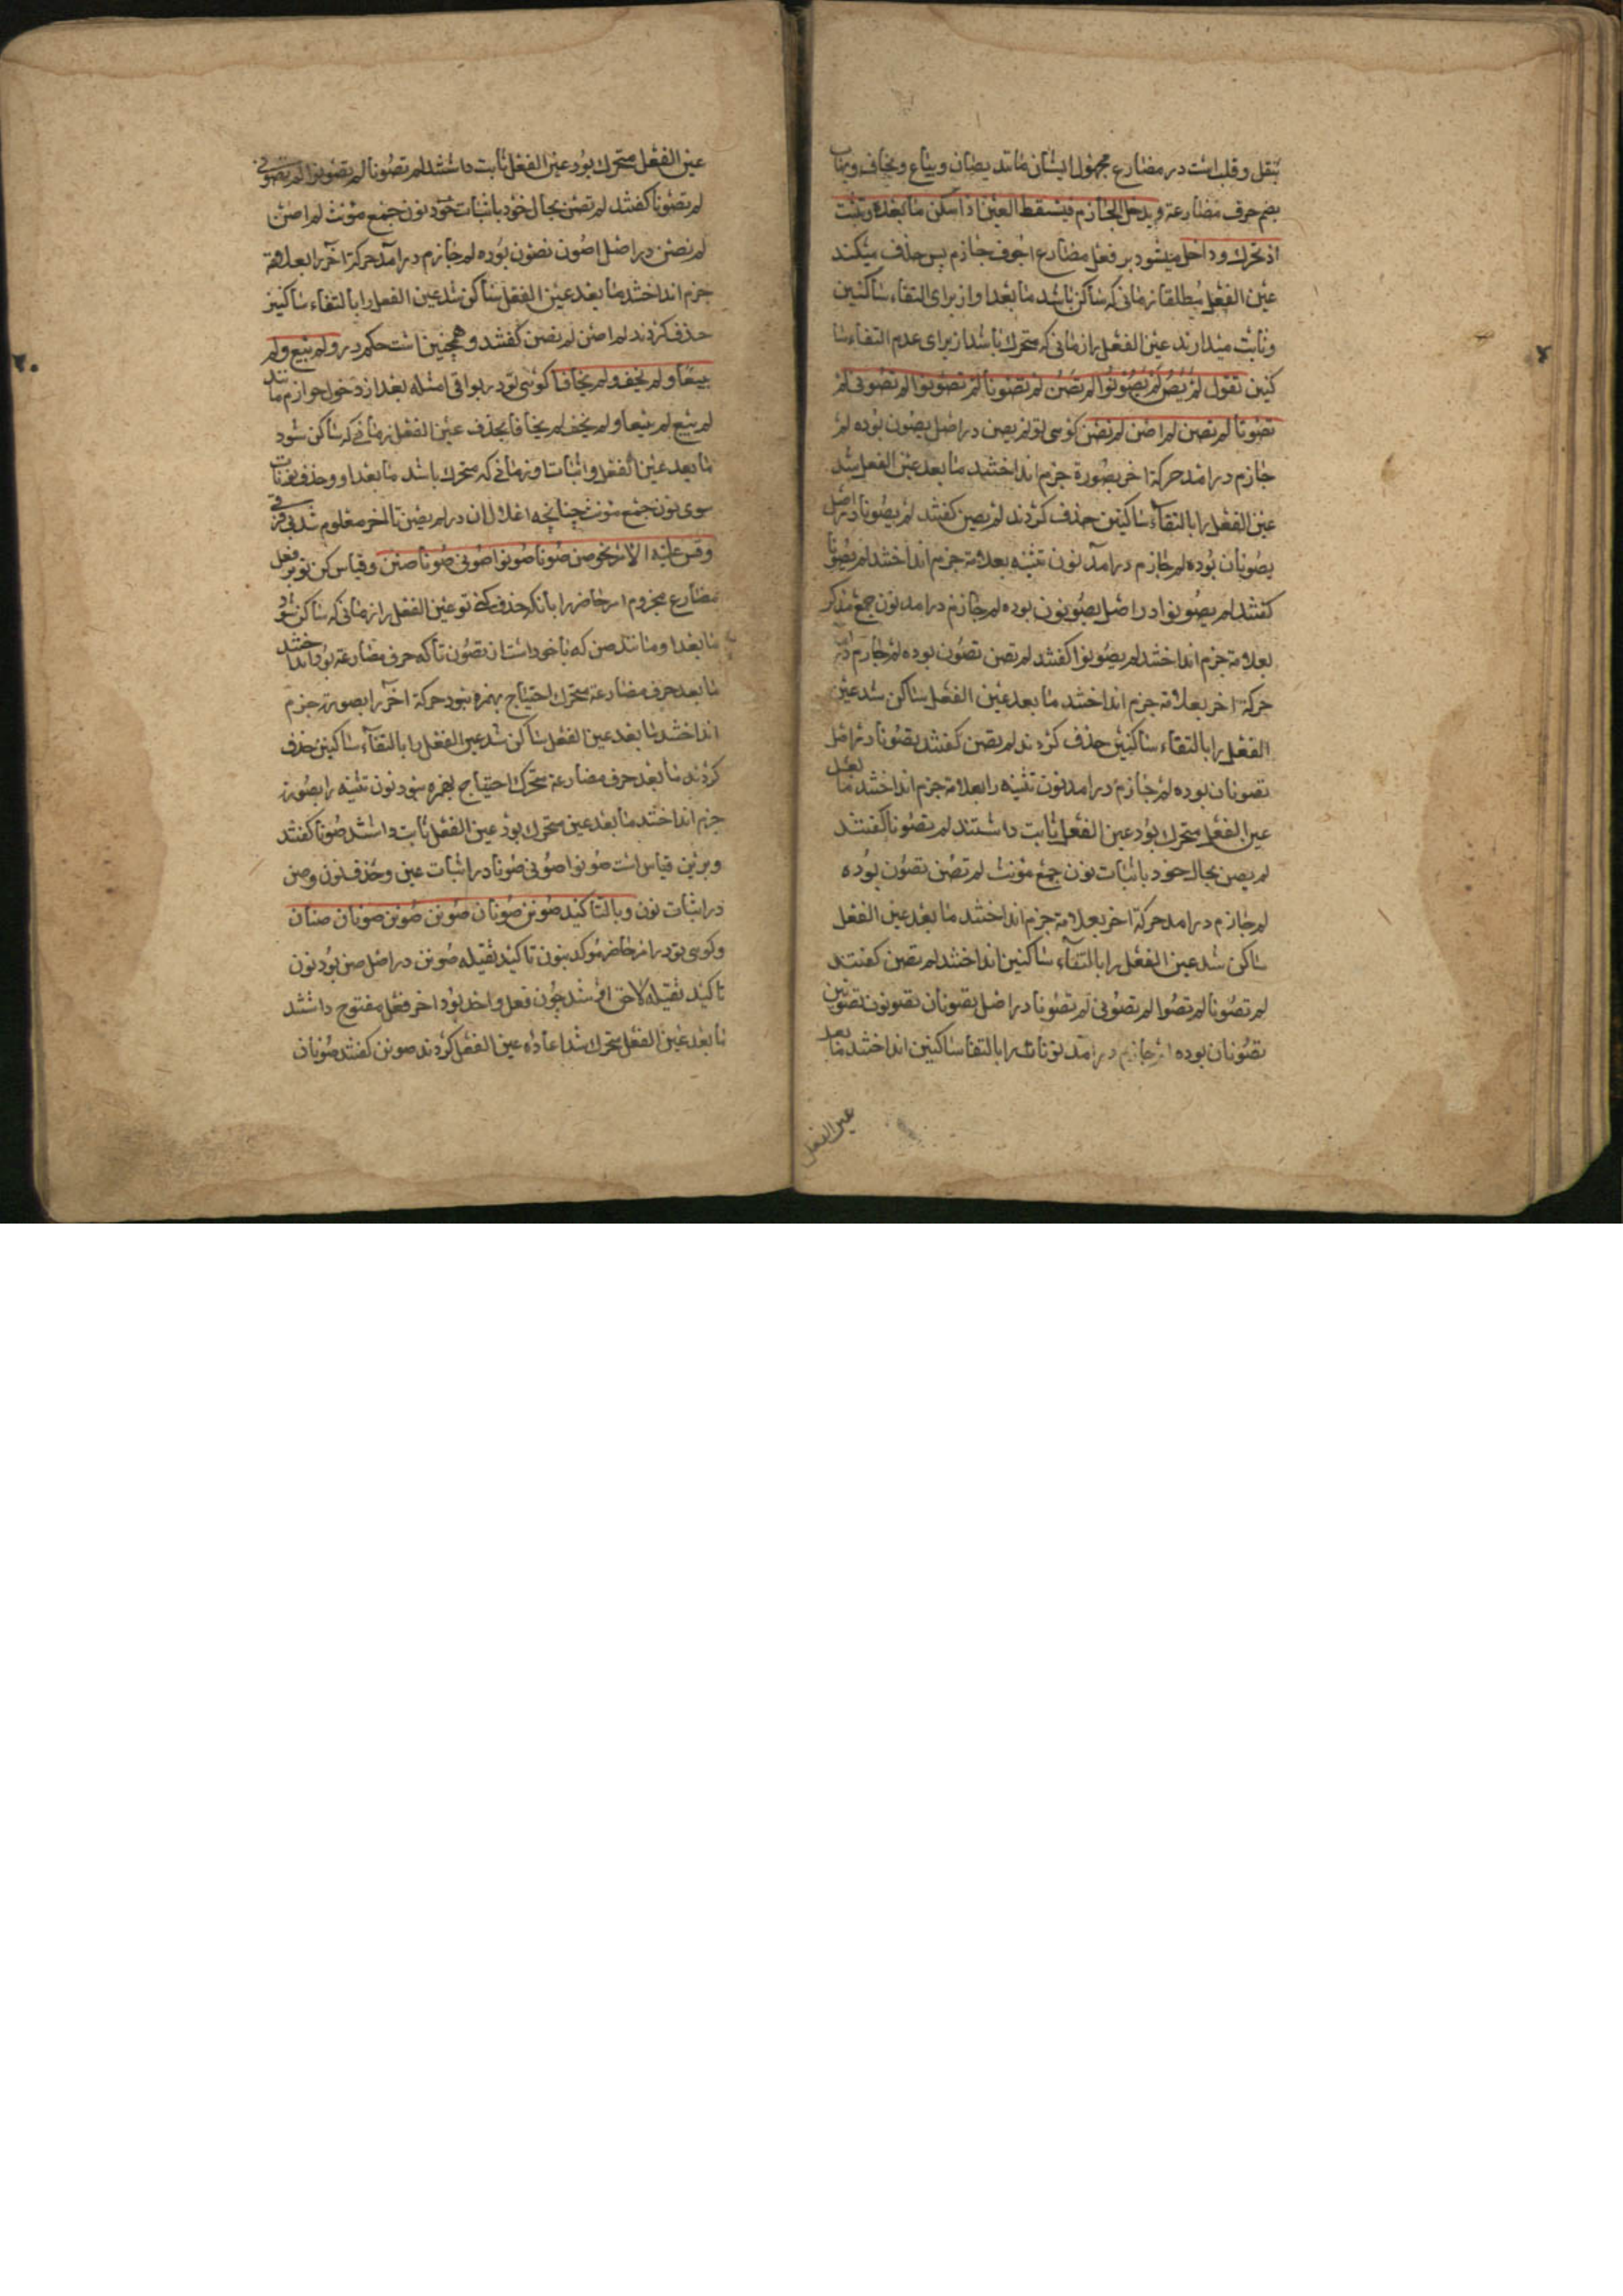 بنقل و قلب است در مضارع مجهول ایشان مانند یصان و یباع و یخاف و یهاب
بضم حرف مضارعة و یدخل الجازم فیسقط العین اذا سکن ما بعده و تثبت
اذ تحرک و داخل میشود بر فعل مضارع اجوف جازم پس حذف میکند
عین الفعل مطلقا زمانی که ساکن باشد ما بعد او از برای التقاء ساکنین
و ثابت میدارند عین الفعل را زمانی که متحرک باشد از برای عدم التقاء سا
کنین تقول لم یصن لم یصونا لم یصونوا لم تصن لم تصونا لم تصونوا لم تصونی لم
تصونا لم تصن لم اصن لم نصن کوئی تو لم یصن در اصل یصون بوده لم
جازم درامد حرکة اخر بصورة جزم انداختند ما بعد عین الفعل شد
عین الفعل را بالتقاء ساکنین حذف کردند لم یصن کفتند لم یصونا در اصل
یصونان بوده لم جازم درآمد نون تثنیه بعلامة جزم انداختند لم یصونا
کفتند لم یصونوا در اصل یصونون بوده لم جازم درامد نون جمع مذکر
بعلامة جزم انداختند لم یصونوا کفتند لم تصن تصون بوده لم جازم درامد
حرکة اخر بعلامة جزم انداختند ما بعد عین الفعل ساکن شد عین
الفعل را بالتقاء ساکنین حذف کردند لم تصن کفتند تصونا در اصل
تصونان بوده لم جازم درامد نون تثنیه را بعلامة جزم انداختند ما بعد
عین الفعل متحرک بود عین الفعل ثابت داشتند لم تصونا کفتند
لم یصن بحال خود باثبات نون جمع مؤنث لم تصن تصون بوده
لم جازم درامد حرکة اخر بعلامة جزم انداختند ما بعد عین الفعل
ساکن شد عین الفعل را بالتقاء ساکنین انداختند لم تصن کفتند
لم تصونا لم تصوا لم تصونی لم تصونا در اصل تصونان تصونون تصونین
تصونان بوده لم جازم درآمد نونات را بالتقا ساکنین انداختند ما بعد
عین الفعل
عین الفعل متحرک بود عین الفعل ثابت داشتند لم تصونا لم تصونوا لم تصونی
لم تصونا کفتند لم تصن بحال خود باثبات خود نون جمع مؤنث لم اصن
لم نصن در اصل اصون نصون بوده لم جازم درآمد حرکة اخر را بعلامة
جزم انداختند ما بعد عین الفعل ساکن شد عین الفعل را بالتقاء ساکنین
حذف کردند لم اصن لم نصن کفتند و همچنین است حکم در و لم یبع و لم
یبیعا و لم یخف و لم یخافا کوئی تو در بواقی امثله بعد از دخول جوازم مانند
لم یبع لم یبیعا و لم یخف لم یخافا بحذف عین الفعل زمانی که ساکن شود
ما بعد عین الفعل و اثبات او زمانی که متحرک باشد ما بعد او و حذف نونات
سوی نون جمع مؤنث چنانچه اعلال ان در لم یصن تا اخر معلوم شد
و قس علیه الامر نحو صن صونا صونوا صونی صونا صن و قیاس کن تو بر فعل
مضارع مجزوم امر حاضر را بانکه حذف کنی تو عین الفعل را زمانی که ساکن شود
ما بعد او مانند صن که ماخوذ است از تصون تا که حرف مضارعة بود انداختند
ما بعد حرف مضارعة متحرک احتیاج بهمزه نبود حرکة اخر را بصورة جزم
انداختند ما بعد عین الفعل ساکن شد عین الفعل را بالتقاء ساکنین حذف
کردند ما بعد حرف مضارعة متحرک احتیاج بهمزه نبود نون تثنیه را بصورة
جزم انداختند ما بعد عین متحرک بود عین الفعل ثابت داشتند صونا کفتند
و برین قیاس است صونوا صونی صونا در اثبات عین و حذف نون و صن
در اثبات نون و بالتاکید صونن صونان صونن صونن صونان صنان
و کوئی تو در امر حاضر مؤکد بنون تاکید ثقیله صونن در اصل صن بود نون
تاکید ثقیله لاحق او شد چون فعل واحد بود اخر فعل مفتوح داشتند
ما بعد عین الفعل متحرک شد اعاده عین الفعل کردند صونن کفتند صونان